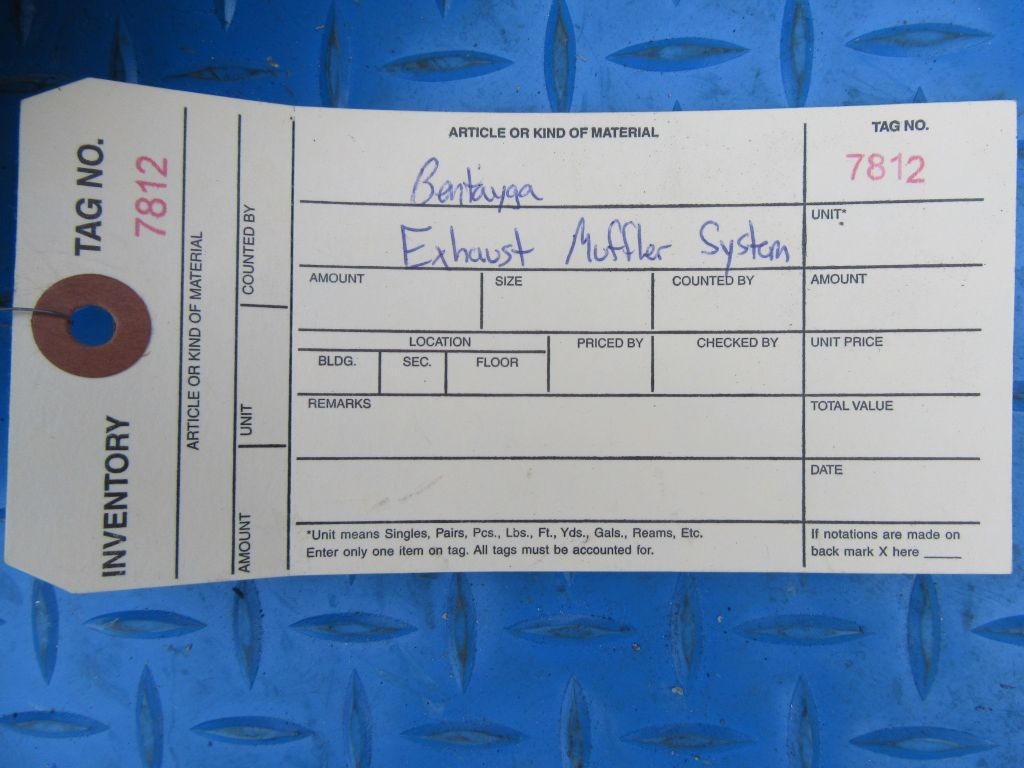 TAG NO.
7812
INVENTORY
ARTICLE OR KIND OF MATERIAL
COUNTED BY
UNIT
AMOUNT
ARTICLE OR KIND OF MATERIAL
Bentayga
Exhaust Muffler System
TAG NO.
7812
UNIT*
AMOUNT SIZE COUNTED BY AMOUNT
LOCATION PRICED BY CHECKED BY UNIT PRICE
BLDG. SEC. FLOOR
REMARKS TOTAL VALUE
DATE
*Unit means Singles, Pairs, Pcs., Lbs., Ft., Yds., Gals., Reams, Etc.
Enter only one item on tag. All tags must be accounted for.
If notations are made on
back mark X here _____